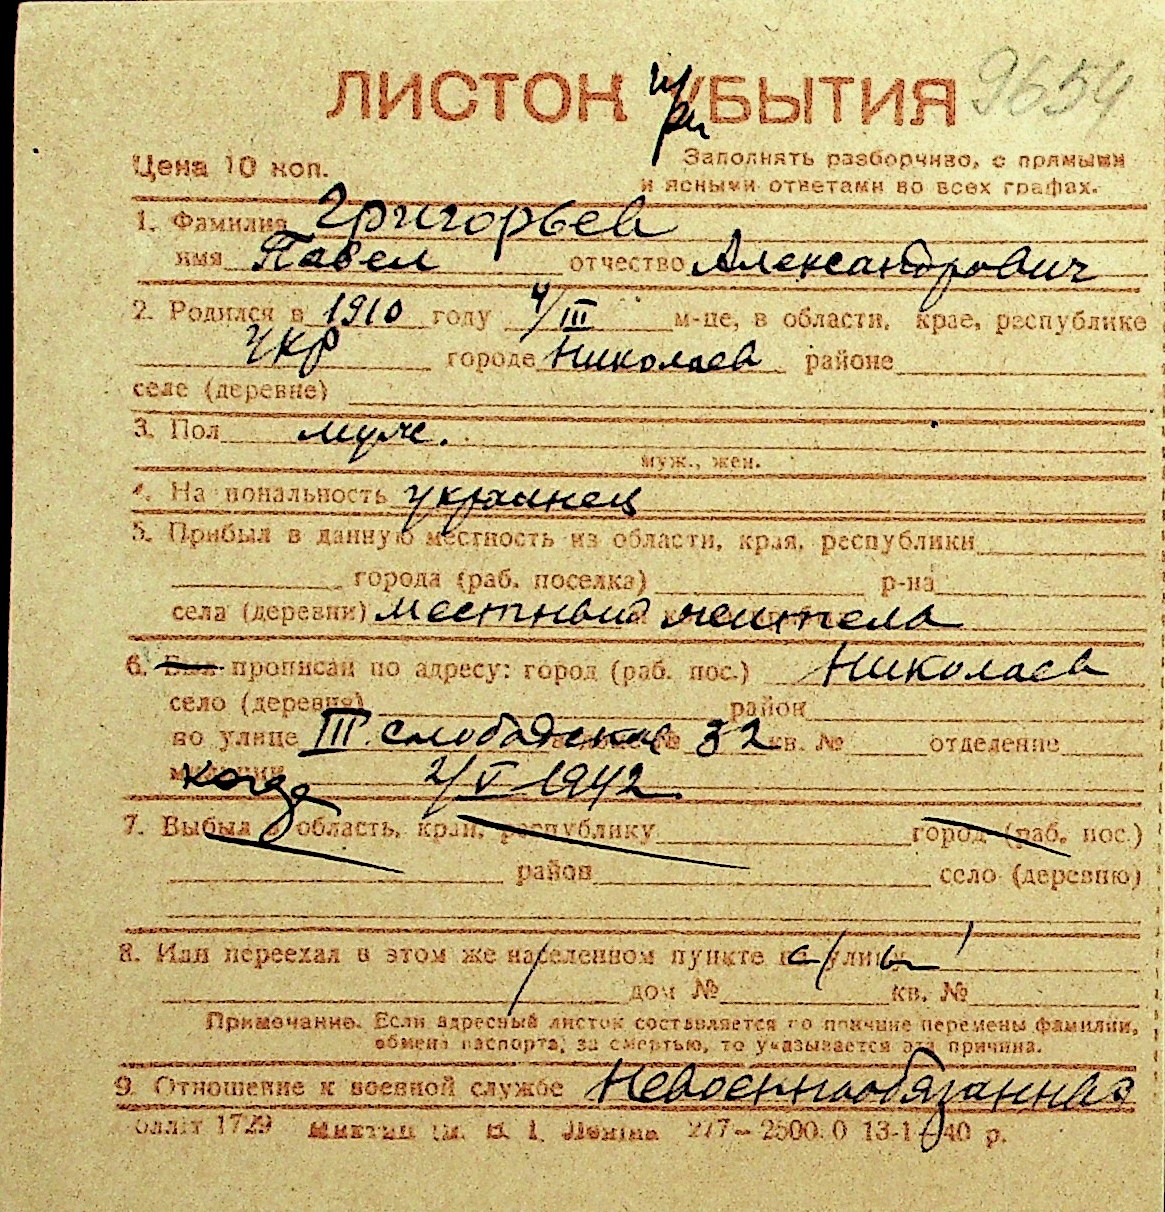 ЛИСТОК при УБЫТИЯ 9654
Цена 10 коп. Заполнять разборчиво, с прямыми
и ясными ответами во всех графах.
1. Фамилия Григорьев
имя Павел отчество Александрович
2. Родился в 1910 году 4/III м-це, в области, крае, республике
Укр городе Николаев районе
селе (деревне)
3. Пол муж.
муж., жен.
4. Национальность украинец
5. Прибыл в данную местность из области, края, республики
города (раб. поселка) р-на
села (деревни) местный житель
6. Был прописан по адресу: город (раб. пос.) Николаев
село (деревня) район
по улице III слободская № 32 кв. № отделение
милиции когда 2/V 1942
7. Выбыл в область, край, республику город (раб. пос.)
район село (деревню)
8. Или переехал в этом же населенном пункте на улицу
дом № кв. №
Примечание. Если адресный листок составляется по причине перемены фамилии,
обмена паспорта, за смертью, то указывается эта причина.
9. Отношение к военной службе Невоеннообязанный
Облліт 1729 ім. В. І. Леніна 277—2500.0 13-1-40 р.